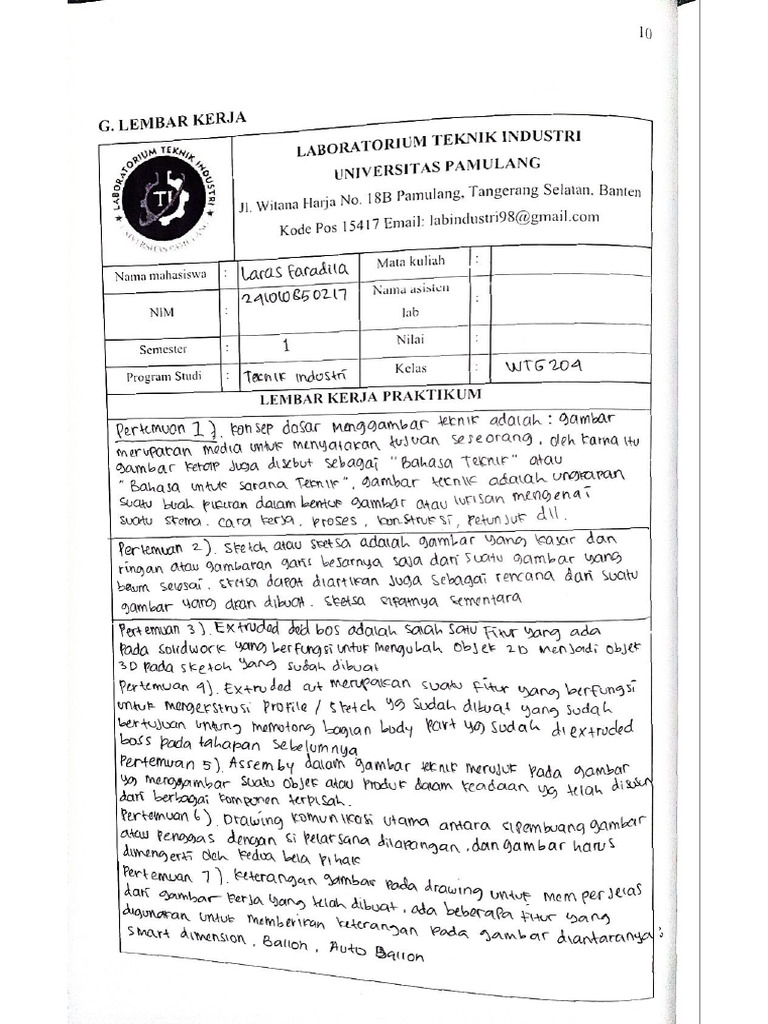 10
G. LEMBAR KERJA
LABORATORIUM TEKNIK INDUSTRI
TI
UNIVERSITAS PAMULANG
LABORATORIUM TEKNIK INDUSTRI
UNIVERSITAS PAMULANG
Jl. Witana Harja No. 18B Pamulang, Tangerang Selatan. Banten
Kode Pos 15417 Email: labindustri98@gmail.com
Nama mahasiswa : Laras Faradila Mata kuliah :
NIM : 241010850217 Nama asisten lab :
Semester : 1 Nilai :
Program Studi : Teknik industri Kelas : WTG204
LEMBAR KERJA PRAKTIKUM
Pertemuan 1). Konsep dasar menggambar teknik adalah : gambar
merupakan media untuk menyatakan tujuan seseorang, oleh karna itu
gambar kerap juga disebut sebagai "Bahasa Teknik" atau
"Bahasa untuk sarana Teknik", gambar teknik adalah ungkapan
suatu buah pikiran dalam bentuk gambar atau lukisan mengenai
suatu skema. cara kerja. proses, konstruksi, petunjuk dll.
Pertemuan 2). Sketch atau sketsa adalah gambar yang kasar dan
ringan atau gambaran garis besarnya saja dari suatu gambar yang
belum selesai. sketsa dapat diartikan juga sebagai rencana dari suatu
gambar yang akan dibuat. sketsa sipatnya sementara
Pertemuan 3). Extruded bos adalah salah satu fitur yang ada
pada solidwork yang berfungsi untuk mengubah objek 2D menjadi objek
3D pada sketch yang sudah dibuat
Pertemuan 4). Extruded cut merupakan suatu fitur yang berfungsi
untuk mengekstrusi profile / sketch yg sudah dibuat yang sudah
bertujuan untung memotong bagian body part yg sudah di extruded
boss pada tahapan sebelumnya
Pertemuan 5). Assemby dalam gambar teknik merujuk pada gambar
yg menggambar suatu objek atau produk dalam keadaan yg telah disusun
dari berbagai komponen terpisah.
Pertemuan 6). Drawing komunikasi utama antara sipembuang gambar
atau penggas dengan si pelaksana dilapangan, dan gambar harus
dimengerti oleh kedua bela pihak
Pertemuan 7). Keterangan gambar pada drawing untuk memperjelas
dari gambar kerja yang telah dibuat, ada beberapa fitur yang
digunakan untuk memberikan keterangan pada gambar diantaranya :
smart dimension, Ballon, Auto Ballon